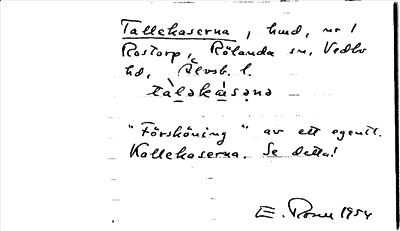 Tallekaserna, hmd, nr 1
Rostorp, Rölanda sn, Vedbo
hd, Älvsb. l.
tàləkàsəṇa
"Försköning" av ett egentl.
Kallekaserna. Se detta!
E. Rosen 1954